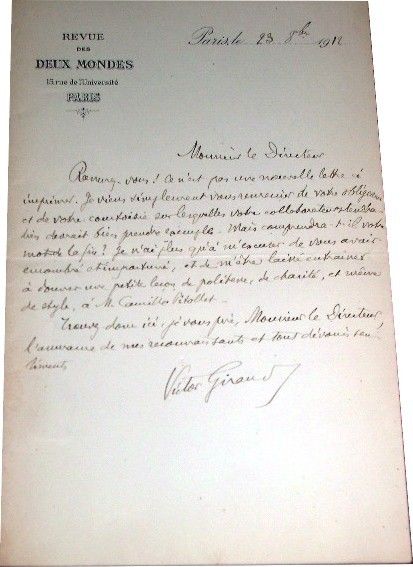 REVUE
DES
DEUX MONDES
15 rue de l'Université
PARIS
Paris, le 23 8bre 1912
Monsieur le Directeur
Rassurez-vous! Ce n'est pas une nouvelle lettre à
imprimer. Je viens simplement vous remercier de votre obligeance
et de votre courtoisie sur lesquelles votre collaborateur
devrait bien prendre exemple. Mais comprendra-t-il votre
mot de la fin? Je n'ai plus qu'à m'excuser de vous avoir
encombré et importuné, et de m'être laissé entraîner
à donner une petite leçon de politesse, de charité, et même
de style, à M. Camille Pitollet.
Trouvez donc ici, je vous prie, Monsieur le Directeur,
l'assurance de mes reconnaissants et tout dévoués sen-
timents
Victor Giraud